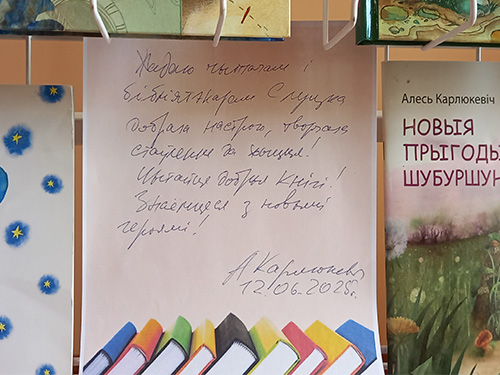 Жадаю чытачам і
бібліятэкарам Слуцка
добрага настрою, творчага
стаўлення да жыцця!
Чытайце добрыя кнігі!
Знаёмцеся з новымі
героямі!
А Карлюкевіч
12.06.2025г.
Алесь Карлюкевіч
НОВЫЯ
ПРЫГОДЫ
ШУБУРШУН